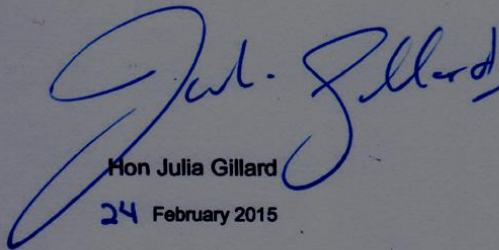 Julia Gillard
Hon Julia Gillard
24 February 2015